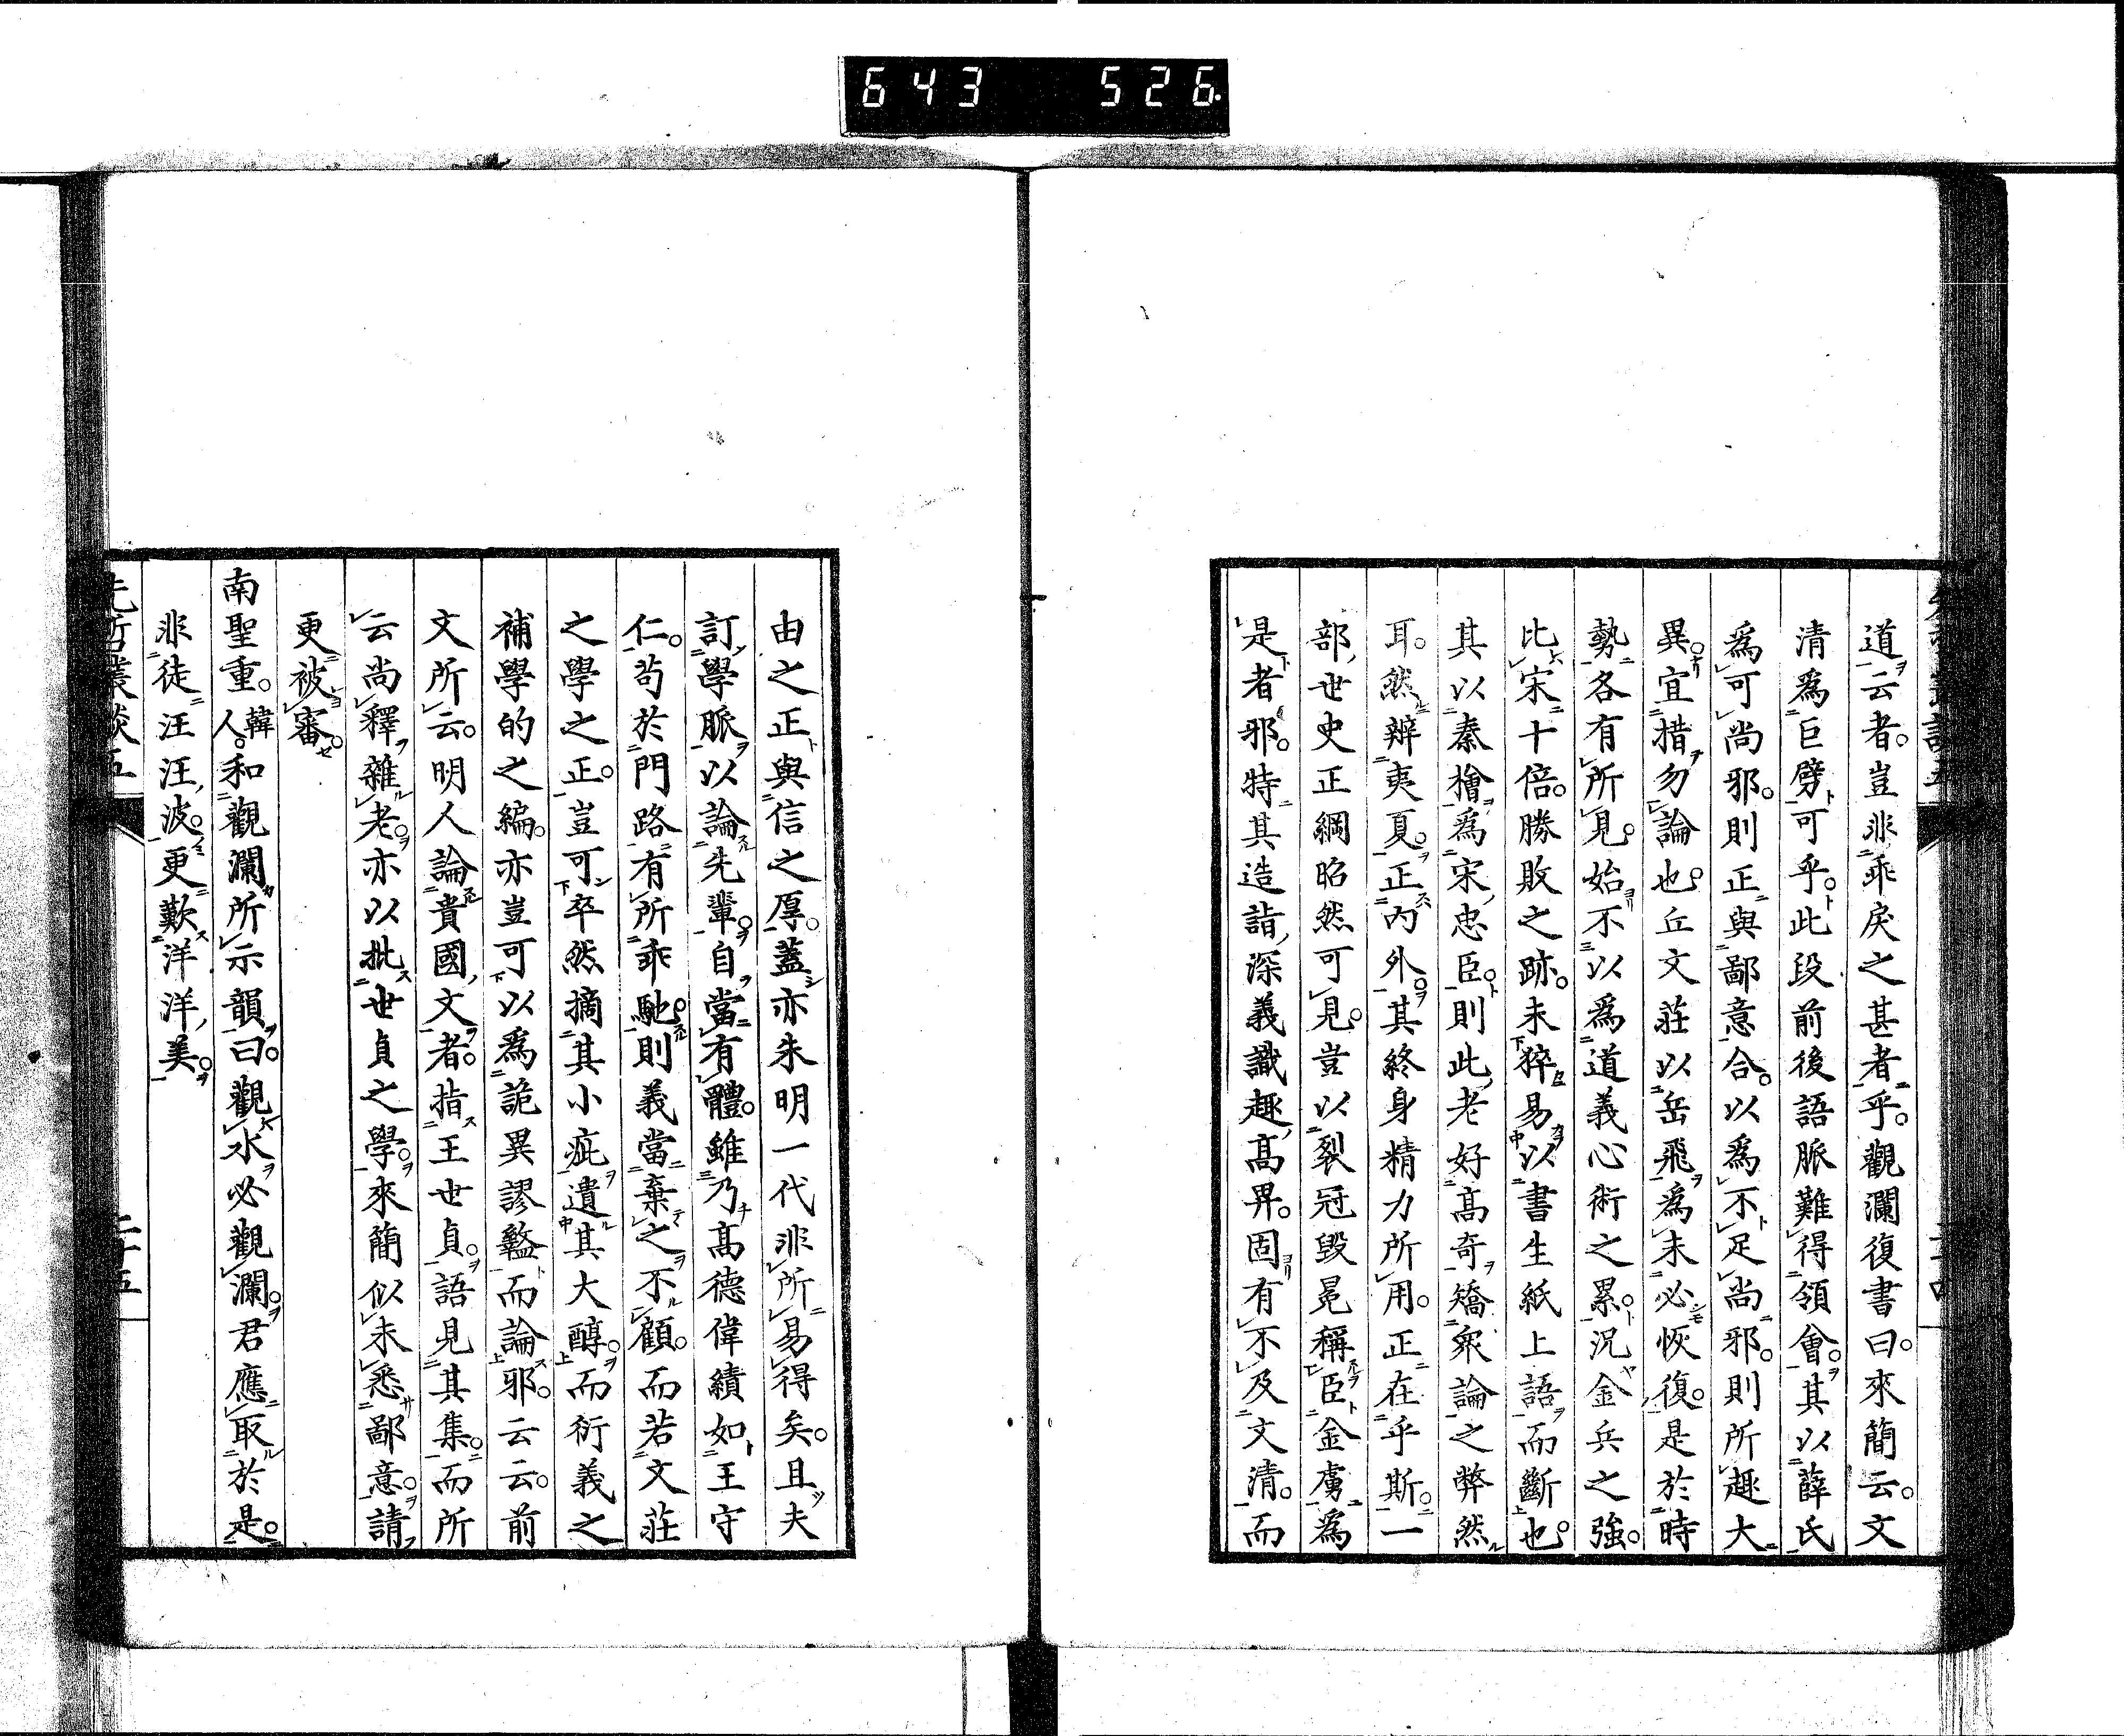 643 526
道云者。豈非乖戻之甚者乎。觀瀾復書曰。來簡云。文
清爲巨擘可乎。此段前後語脈難得領會。其以薛氏
爲可尚邪。則正與鄙意合。以爲不足尚邪。則所趣大
異。宜措勿論也。丘文莊以岳飛爲未必恢復。是於時
勢各有所見。始不以爲道義心術之累。況金兵之強。
比宋十倍。勝敗之跡。未猝易以書生紙上語而斷也。
其以秦檜爲宋忠臣。則此老好高奇矯衆論之弊然
耳。然辨夷夏。正內外。其終身精力所用。正在乎斯。一
部世史正綱昭然可見。豈以裂冠毀冕稱臣金虜爲
是者邪。特其造詣深義識趣高昇。固有不及文清。而
由之正與信之厚。蓋亦朱明一代非所易得矣。且夫
訂學脈以論先輩。自當有體。雖乃高德偉績如王守
仁。苟於門路有所乖馳。則義當棄之不顧。而若文莊
之學之正。豈可卒然摘其小疵遺其大醇。而衍義之
補學的之編。亦豈可以爲詭異謬盭而論邪。云云。前
文所云。明人論貴國文者。指王世貞。語見其集。而所
云尚釋雜老。亦以批世貞之學。來簡似未悉鄙意。請
更被審。
南聖重。韓人。和觀瀾所示韻曰。觀水必觀瀾。君應取於是。
非徒汪汪波。更歎洋洋美。
先哲叢談五
二十五